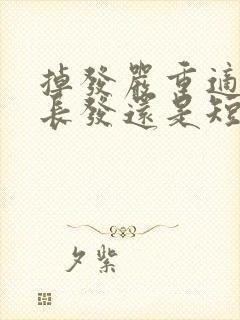 掉發嚴重適
長發還是短
夕紫